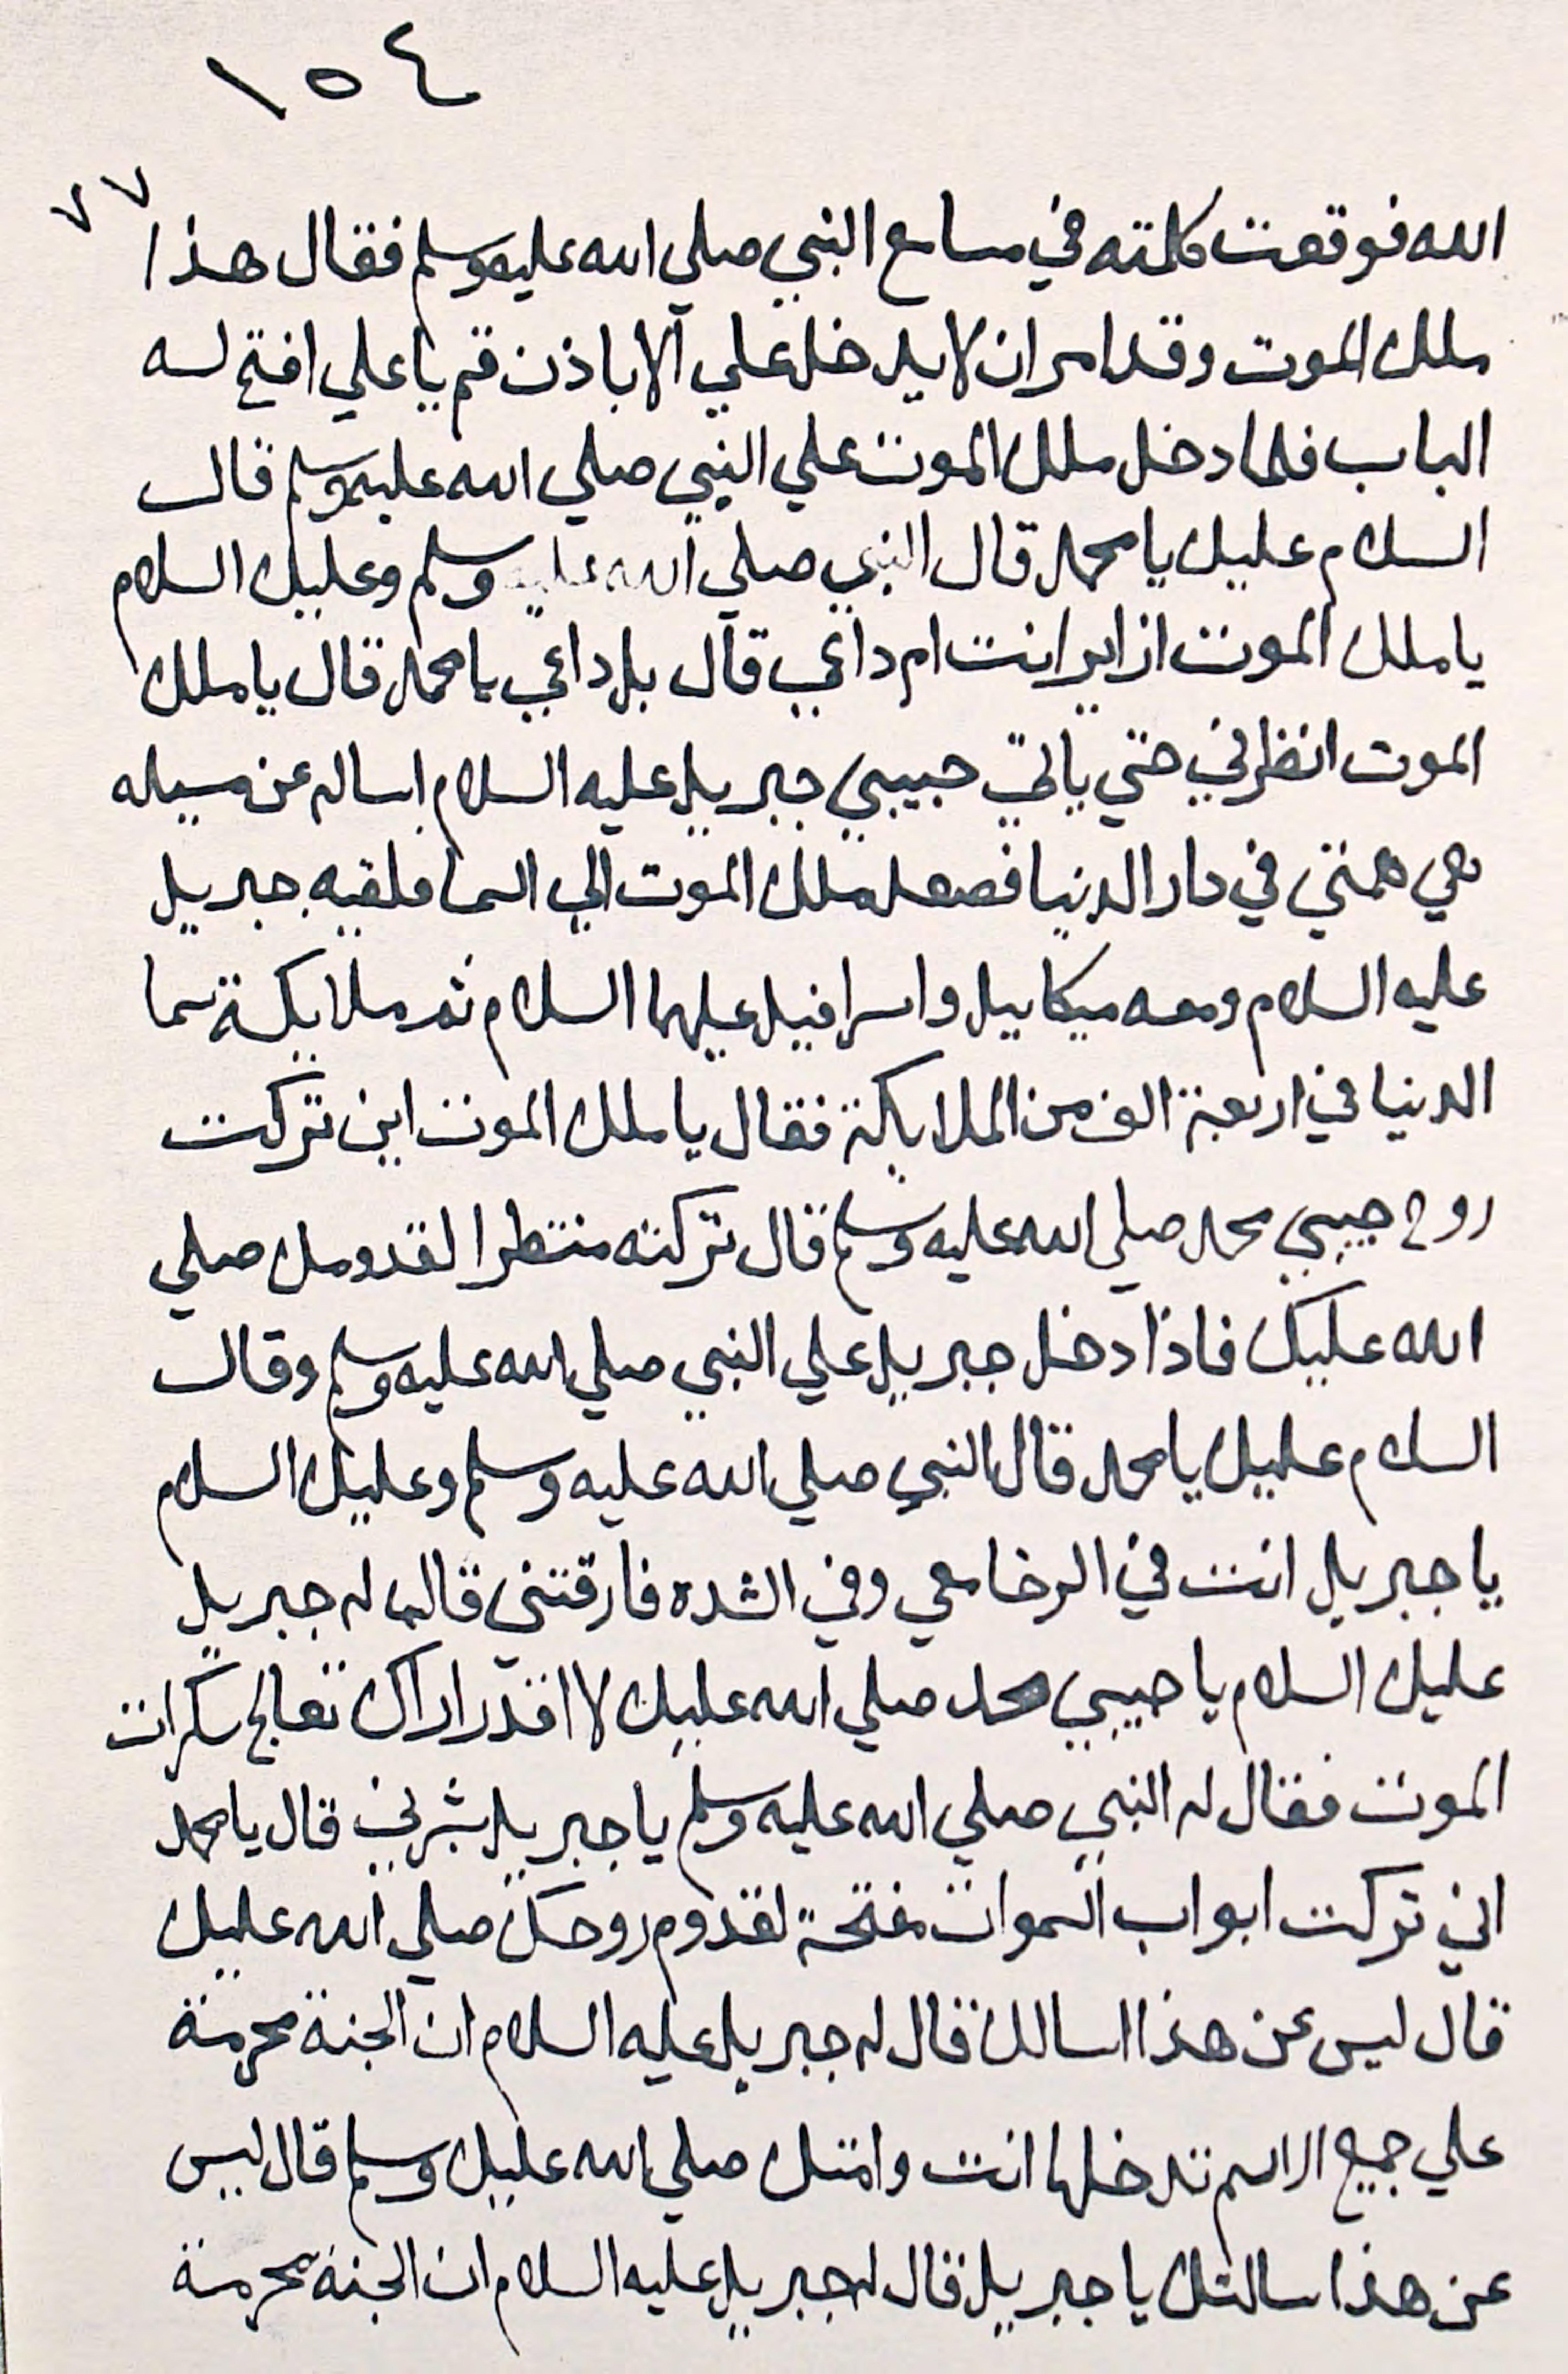 ١٥٤
٧٧
الله فوقعت كلمته في مسامع النبي صلي الله عليه وسلم فقال هذا
ملك الموت وقد امر ان لا يدخل علي الا باذن قم يا علي افتح له
الباب فلما دخل ملك الموت علي النبي صلي الله عليه وسلم قال
السلام عليك يا محمد قال النبي صلي الله عليه وسلم وعليك السلام
يا ملك الموت ازاير انت ام داعي قال بل داعي يا محمد قال يا ملك
الموت انظرني حتي ياتي حبيبي جبريل عليه السلام اساله عن مسيله
هي همتي في دار الدنيا فصعد ملك الموت الي السما فلقيه جبريل
عليه السلام ومعه ميكاييل واسرافيل عليهما السلام ثم ملايكة سما
الدنيا في اربعة الف من الملايكة فقال يا ملك الموت اين تركت
روح حبيبي محمد صلي الله عليه وسلم قال تركته منتظرا لقدومك صلي
الله عليك فاذا دخل جبريل علي النبي صلي الله عليه وسلم وقال
السلام عليك يا محمد قال النبي صلي الله عليه وسلم وعليك السلام
يا جبريل انت في الرخا معي وفي الشده فارقتني قال له جبريل
عليك السلام يا حبيبي محمد صلي الله عليك لا اقدر اراك تعالج سكرات
الموت فقال له النبي صلي الله عليه وسلم يا جبريل بشرني قال يا محمد
اني تركت ابواب السموات مفتحة لقدوم روحك صلي الله عليك
قال ليس عن هذا اسالك قال له جبريل عليه السلام ان الجنة محرمة
علي جميع الامم تدخلها انت وامتك صلي الله عليك وسلم قال ليس
عن هذا سالتك يا جبريل قال له جبريل عليه السلام ان الجنة محرمة